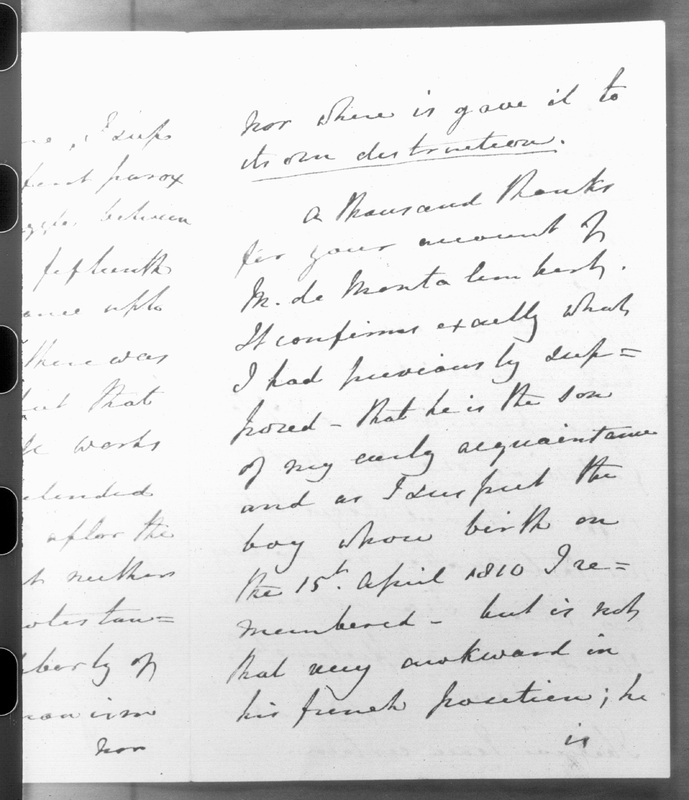 I sup
parox
between
fifteenth
upto
There was
that
works
after the
neither
otestan=
liberty of
nor
nor where is gave it to
its own destruction.
A thousand thanks
for your account of
M. de Montalembert.
It confirms exactly what
I had previously sup=
posed - that he is the son
of my early acquaintance
and as I suspect the
boy whose birth on
the 15th. April 1810 I re=
membered - but is not
that very awkward in
his french position; he
is